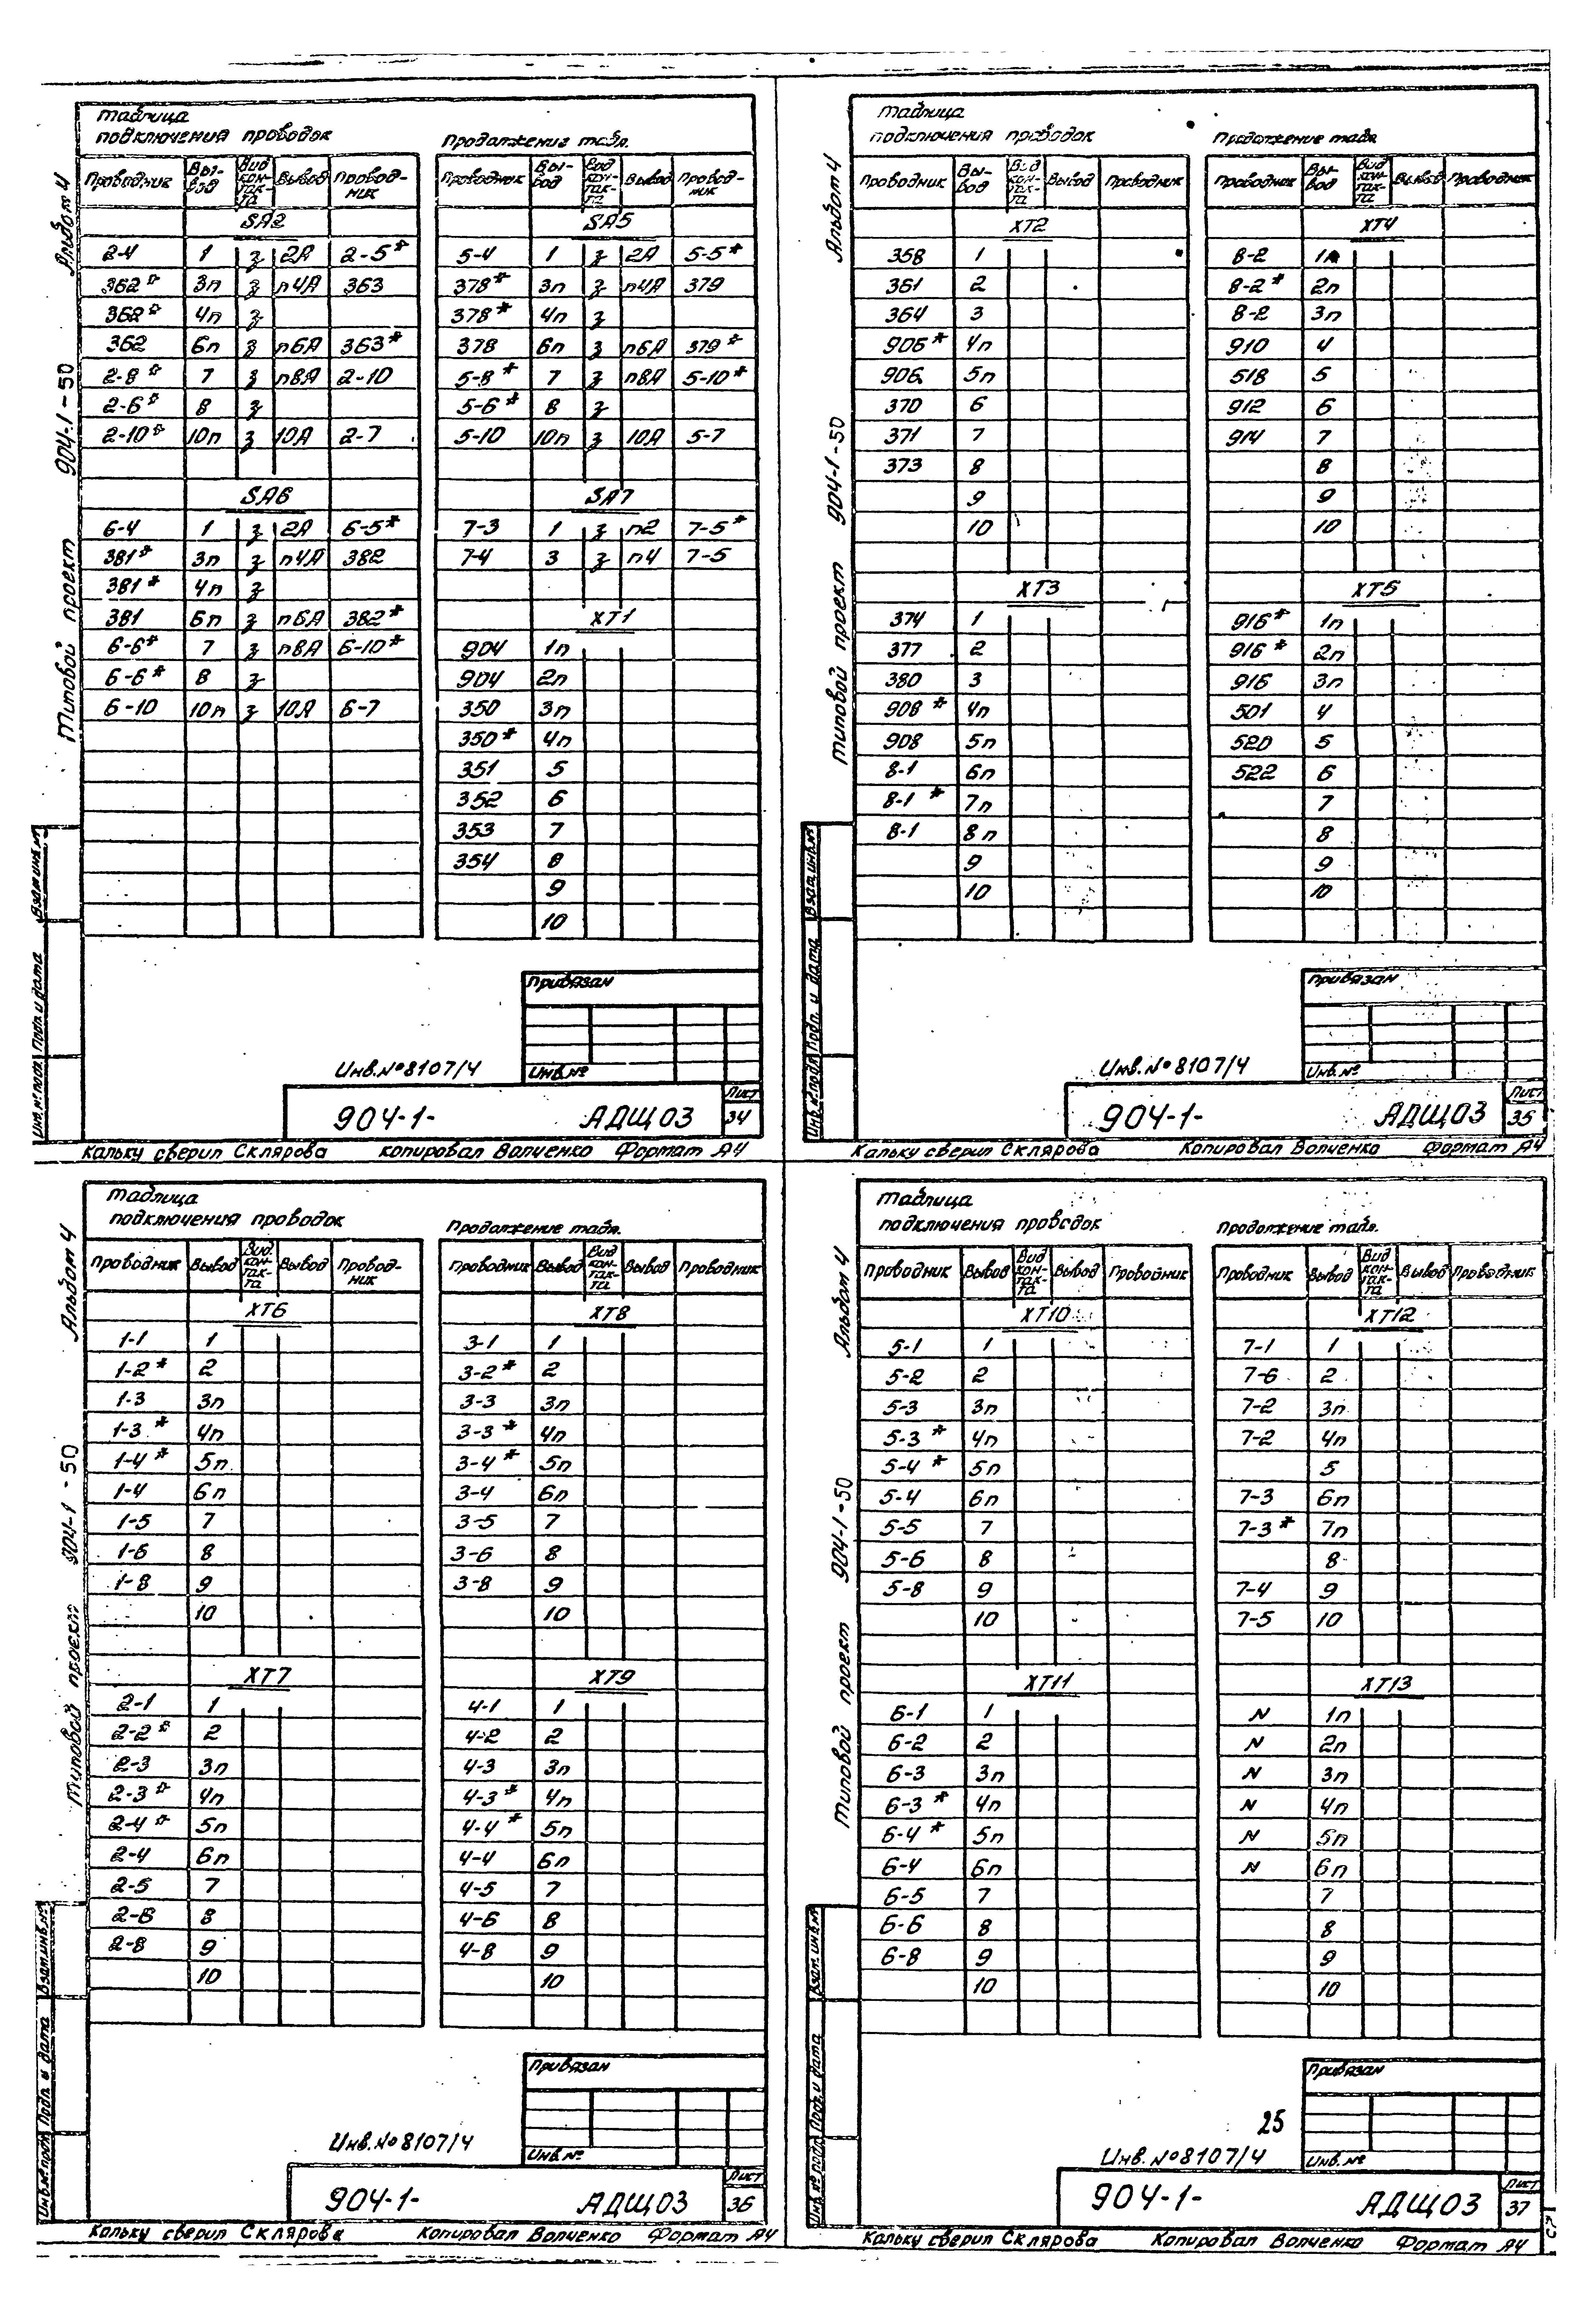 Таблица
подключения проводок
Проводник Вы-вод Вид кон-так-та Вывод Провод-ник
SA2
2-4 1 з 2А 2-5*
362* 3п з п4А 363
362* 4п з
362 6п з п6А 363*
2-8* 7 з п8А 2-10
2-6* 8 з
2-10* 10п з 10А 2-7
SA6
6-4 1 з 2А 6-5*
381* 3п з п4А 382
381* 4п з
381 6п з п6А 382*
6-6* 7 з п8А 6-10*
6-6* 8 з
6-10 10п з 10А 6-7
Продолжение табл.
Проводник Вы-вод Вид кон-так-та Вывод Провод-ник
SA5
5-4 1 з 2А 5-5*
378* 3п з п4А 379
378* 4п з
378 6п з п6А 379*
5-8* 7 з п8А 5-10*
5-6* 8 з
5-10 10п з 10А 5-7
SA7
7-3 1 з п2 7-5*
7-4 3 з п4 7-5
XT1
904 1п
904 2п
350 3п
350* 4п
351 5
352 6
353 7
354 8
9
10
Альбом 4
904-1-50
Типовой проект
Взам.инв.№
Подп. и дата
Инв.№ подл.
Привязан
Инв.№
Инв.№8107/4
904-1- АДЩ03
Лист
34
Кальку сверил Склярова Копировал Волченко Формат А4
Таблица
подключения проводок
Проводник Вы-вод Вид кон-так-та Вывод Проводник
XT2
358 1
361 2
364 3
906* 4п
906 5п
370 6
371 7
373 8
9
10
XT3
374 1
377 2
380 3
908* 4п
908 5п
8-1 6п
8-1* 7п
8-1 8п
9
10
Продолжение табл.
Проводник Вы-вод Вид кон-так-та Вывод Проводник
XT4
8-2 1п
8-2* 2п
8-2 3п
910 4
518 5
912 6
914 7
8
9
10
XT5
916* 1п
916* 2п
916 3п
501 4
520 5
522 6
7
8
9
10
Альбом 4
904-1-50
Типовой проект
Взам.инв.№
Подп. и дата
Инв.№подл
Привязан
Инв.№
Инв.№8107/4
904-1- АДЩ03
Лист
35
Кальку сверил Склярова Копировал Волченко Формат А4
Таблица
подключения проводок
Проводник Вывод Вид кон-так-та Вывод Провод-ник
XT6
1-1 1
1-2* 2
1-3 3п
1-3* 4п
1-4* 5п
1-4 6п
1-5 7
1-6 8
1-8 9
10
XT7
2-1 1
2-2* 2
2-3 3п
2-3* 4п
2-4* 5п
2-4 6п
2-5 7
2-6 8
2-8 9
10
Продолжение табл.
Проводник Вывод Вид кон-так-та Вывод Проводник
XT8
3-1 1
3-2* 2
3-3 3п
3-3* 4п
3-4* 5п
3-4 6п
3-5 7
3-6 8
3-8 9
10
XT9
4-1 1
4-2 2
4-3 3п
4-3* 4п
4-4* 5п
4-4 6п
4-5 7
4-6 8
4-8 9
10
Альбом 4
904-1-50
Типовой проект
Взам.инв.№
Подп. и дата
Инв.№подл
Привязан
Инв.№
Инв.№8107/4
904-1- АДЩ03
Лист
36
Кальку сверил Склярова Копировал Волченко Формат А4
Таблица
подключения проводок
Проводник Вывод Вид кон-так-та Вывод Проводник
XT10
5-1 1
5-2 2
5-3 3п
5-3* 4п
5-4* 5п
5-4 6п
5-5 7
5-6 8
5-8 9
10
XT11
6-1 1
6-2 2
6-3 3п
6-3* 4п
6-4* 5п
6-4 6п
6-5 7
6-6 8
6-8 9
10
Продолжение табл.
Проводник Вывод Вид кон-так-та Вывод Проводник
XT12
7-1 1
7-6 2
7-2 3п
7-2 4п
5
7-3 6п
7-3* 7п
8
7-4 9
7-5 10
XT13
N 1п
N 2п
N 3п
N 4п
N 5п
N 6п
7
8
9
10
Альбом 4
904-1-50
Типовой проект
Взам.инв.№
Подп. и дата
Инв.№ подл.
Привязан
Инв.№
25
Инв.№8107/4
904-1- АДЩ03
Лист
37
Кальку сверил Склярова Копировал Волченко Формат А4